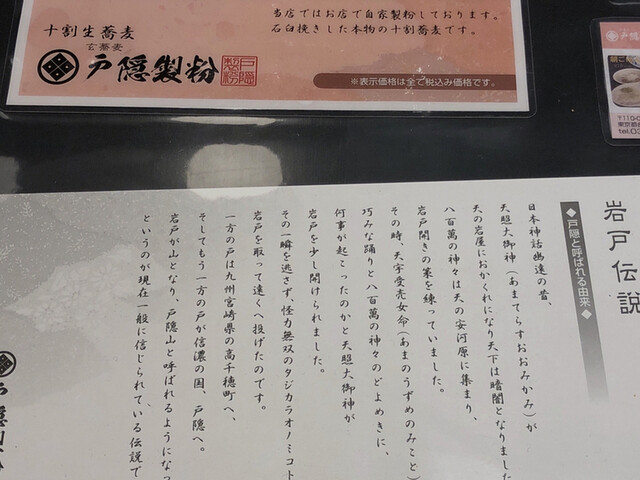 当店ではお店で自家製粉しております。
石臼挽きした本物の十割蕎麦です。
十割生蕎麦
玄蕎麦
戸隠製粉
戸隠
製粉
※表示価格は全て税込み価格です。
戸隠
〒110-0
東京都
tel.03
岩戸伝説
◆戸隠と呼ばれる由来◆
日本神話幽遠の昔、
天照大御神（あまてらすおおみかみ）が
天の岩屋におかくれになり天下は暗闇となりました
八百萬の神々は天の安河原に集まり、
岩戸開きの策を練っていました。
その時、天宇受売女命（あまのうずめのみこと）
巧みな踊りと八百萬の神々のどよめきに、
何事が起こったのかと天照大御神が
岩戸を少し開けられました。
その一瞬を逃さず、怪力無双のタジカラオノミコト
岩戸を取って遠くへ投げたのです。
一方の戸は九州宮崎県の高千穂町へ、
そしてもう一方の戸が信濃の国、戸隠へ。
岩戸が山となり、戸隠山と呼ばれるようになっ
というのが現在一般に信じられている伝説で
戸隠製粉